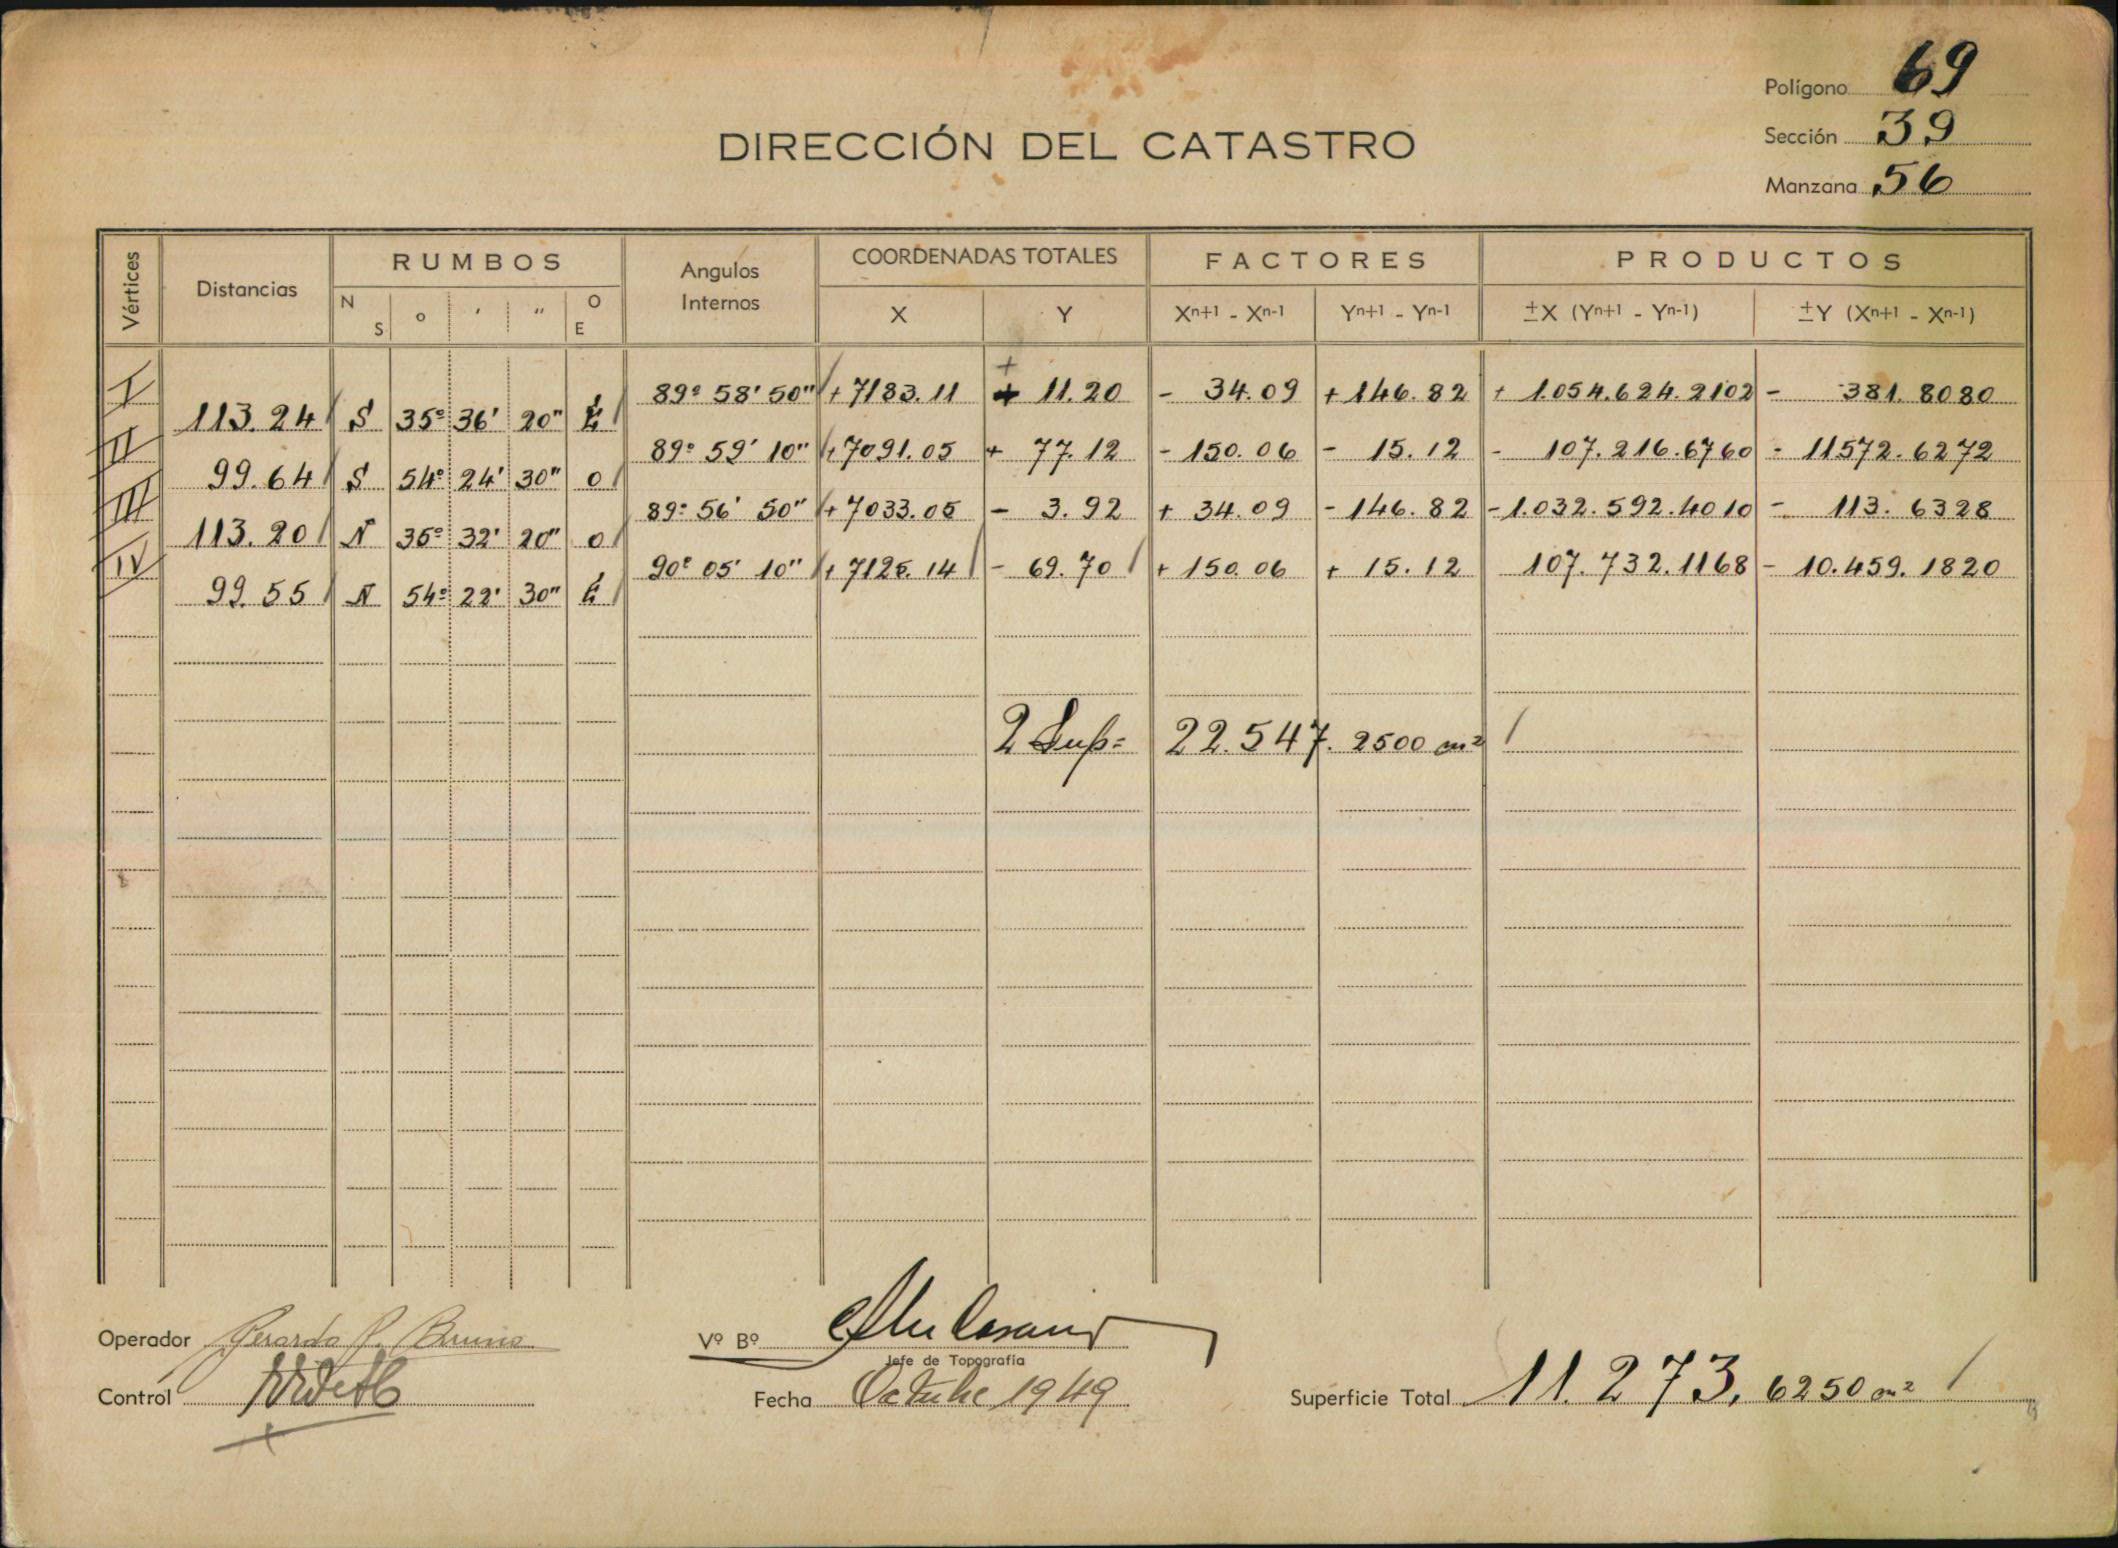 Polígono 69
DIRECCIÓN DEL CATASTRO
Sección 39
Manzana 56
Vértices Distancias RUMBOS Angulos Internos COORDENADAS TOTALES FACTORES PRODUCTOS
N S o ' " O E X Y Xn+1 - Xn-1 Yn+1 - Yn-1 ±X (Yn+1 - Yn-1) ±Y (Xn+1 - Xn-1)
I 89º 58' 50" +7183.11 + 11.20 - 34.09 +146.82 + 1.054.624.2102 - 381.8080
113.24 S 35º 36' 20" E
II 89º 59' 10" +7091.05 + 77.12 - 150.06 - 15.12 - 107.216.6760 - 11572.6272
99.64 S 54º 24' 30" O
III 89º 56' 50" +7033.05 - 3.92 + 34.09 - 146.82 - 1.032.592.4010 - 113.6328
113.20 N 35º 32' 20" O
IV 90º 05' 10" +7125.14 - 69.70 + 150.06 + 15.12 107.732.1168 - 10.459.1820
99.55 N 54º 22' 30" E
2 Sup= 22.547.2500 m²
Operador Gerardo P. Bruno
Vº Bº
Jefe de Topografía
Control
Fecha Octubre 1949
Superficie Total 11.273,6250 m²